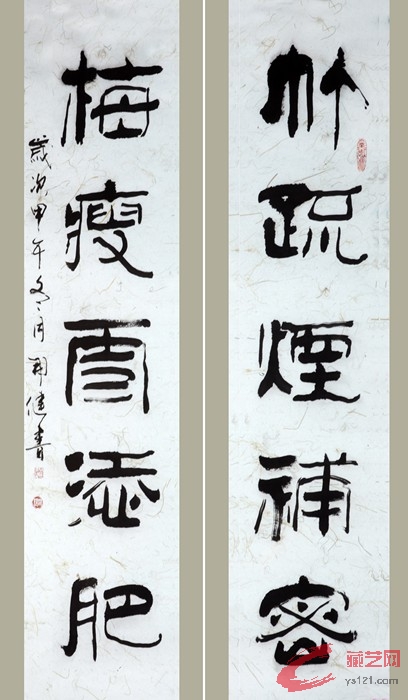 竹疏煙補密
梅瘦雪添肥
歲次甲午冬月健書
藏艺网
ys121.com